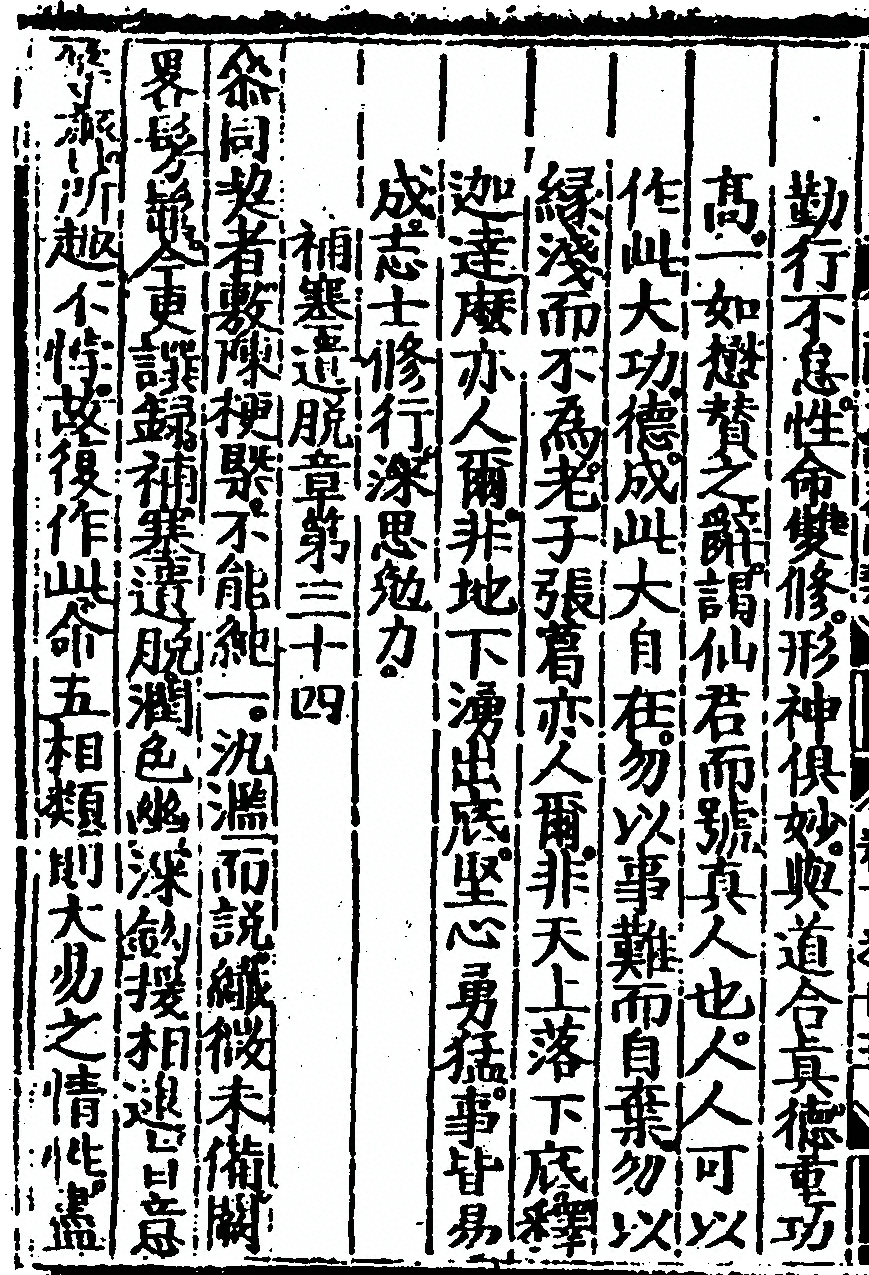 勤行不怠性命雙修形神俱妙與道合真德重功
高一如懋賛之辭謂仙君而號真人也人人可以
作此大功德成此大自在勿以事難而自棄勿以
緣淺而不為老子張葛亦人爾非天上落下底釋
迦達麽亦人爾非地下湧出底堅心勇猛事皆易
成志士修行深思勉力
補塞遺脱章第三十四
叅同契者敷陳梗槩不能純一汎濫而説纎微未備闊
畧髣髴今更譔録補塞遺脱潤色幽深鉤援相逮旨意
所趣不悖故復作此命五相類則大易之情性盡